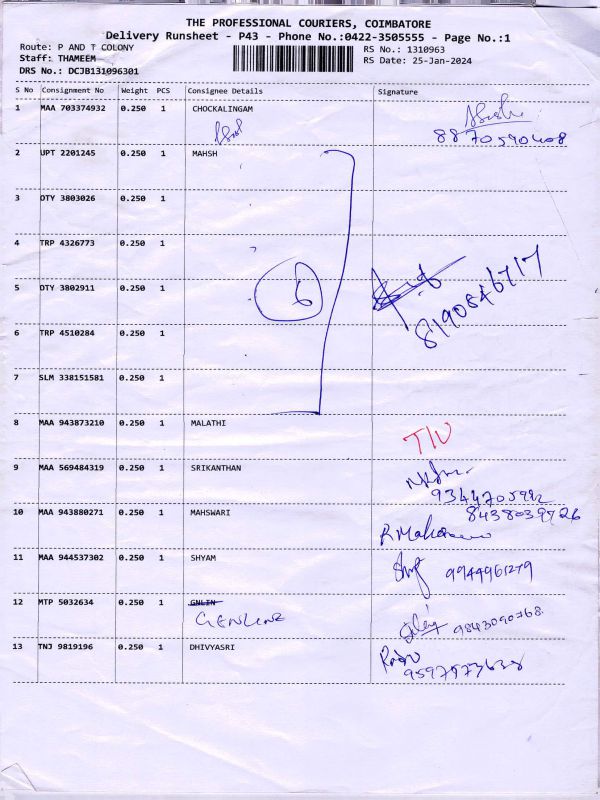 THE PROFESSIONAL COURIERS, COIMBATORE
Delivery Runsheet - P43 - Phone No.:0422-3505555 - Page No.:1
Route: P AND T COLONY
Staff: THAMEEM
DRS No.: DCJB131096301
RS No.: 1310963
RS Date: 25-Jan-2024
S No Consignment No Weight PCS Consignee Details Signature
1 MAA 703374932 0.250 1 CHOCKALINGAM
2 UPT 2201245 0.250 1 MAHSH
3 OTY 3803026 0.250 1
4 TRP 4326773 0.250 1
5 OTY 3802911 0.250 1 6
8190846717
6 TRP 4510284 0.250 1
7 SLM 338151581 0.250 1
8 MAA 943873210 0.250 1 MALATHI
9 MAA 569484319 0.250 1 SRIKANTHAN
10 MAA 943880271 0.250 1 MAHSWARI 8438039726
11 MAA 944537302 0.250 1 SHYAM 9944961279
12 MTP 5032634 0.250 1 GNLIN
GENLINE 9843090768
13 TNJ 9819196 0.250 1 DHIVYASRI